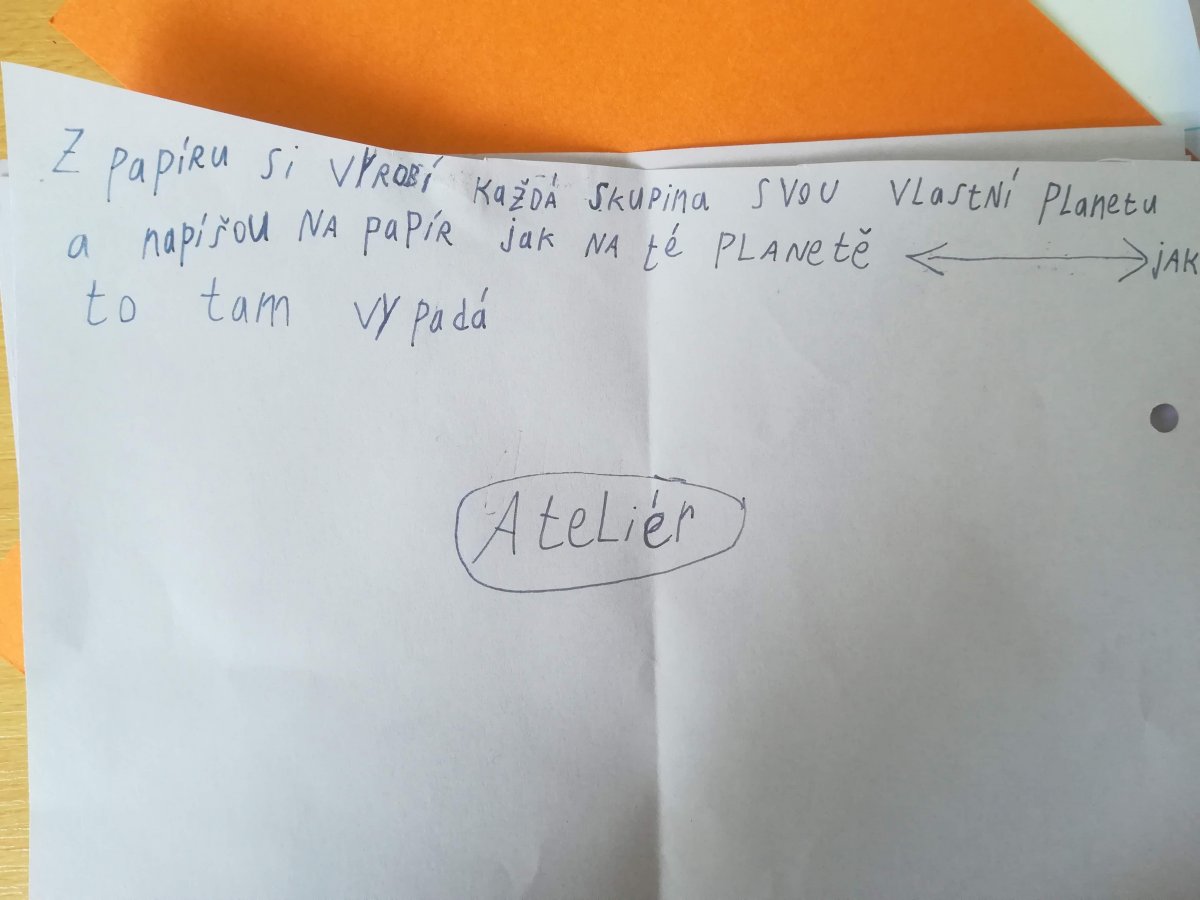 Z papíru si vyrobí každá skupina svou vlastní planetu
a napíšou na papír jak na té planetě <-> jak
to tam vypadá
Ateliér